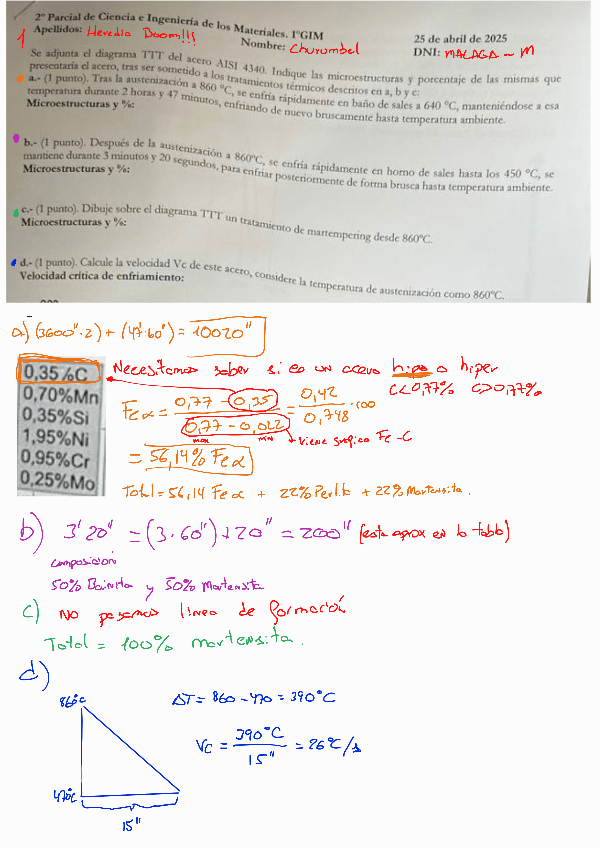 2º Parcial de Ciencia e Ingeniería de los Materiales. 1ºGIM
25 de abril de 2025
1 Apellidos: Heredia Doom!!! Nombre: Churumbel DNI: MALAGA - M
Se adjunta el diagrama TTT del acero AISI 4340. Indique las microestructuras y porcentaje de las mismas que
presentaría el acero, tras ser sometido a los tratamientos térmicos descritos en a, b y c:
a.- (1 punto). Tras la austenización a 860 ºC, se enfría rápidamente en baño de sales a 640 ºC, manteniéndose a esa
temperatura durante 2 horas y 47 minutos, enfriando de nuevo bruscamente hasta temperatura ambiente.
Microestructuras y %:
b.- (1 punto). Después de la austenización a 860ºC, se enfría rápidamente en horno de sales hasta los 450 ºC, se
mantiene durante 3 minutos y 20 segundos, para enfriar posteriormente de forma brusca hasta temperatura ambiente.
Microestructuras y %:
c.- (1 punto). Dibuje sobre el diagrama TTT un tratamiento de martempering desde 860ºC.
Microestructuras y %:
d.- (1 punto). Calcule la velocidad Vc de este acero, considere la temperatura de austenización como 860ºC.
Velocidad crítica de enfriamiento:
a) (3600"·2) + (47'·60") = 10020"
0,35%C
0,70%Mn
0,35%Si
1,95%Ni
0,95%Cr
0,25%Mo
Necesitamos saber si es un acero hipo o hiper
C<0,77% C>0,77%
Feα = 0,77 - 0,35 / 0,77 - 0,022 = 0,42 / 0,748 · 100
max min → viene grafico Fe-C
= 56,14% Feα
Total = 56,14 Feα + 22% Perlita + 22% Martensita.
b) 3'20" = (3·60") + 20" = 200" (esta aprox en la tabla)
composición
50% Bainita y 50% Martensita
c) No pasamos linea de formación
Total = 100% martensita.
d)
860ºC
ΔT = 860 - 470 = 390ºC
Vc = 390ºC / 15" = 26ºC/s
470ºC
15"